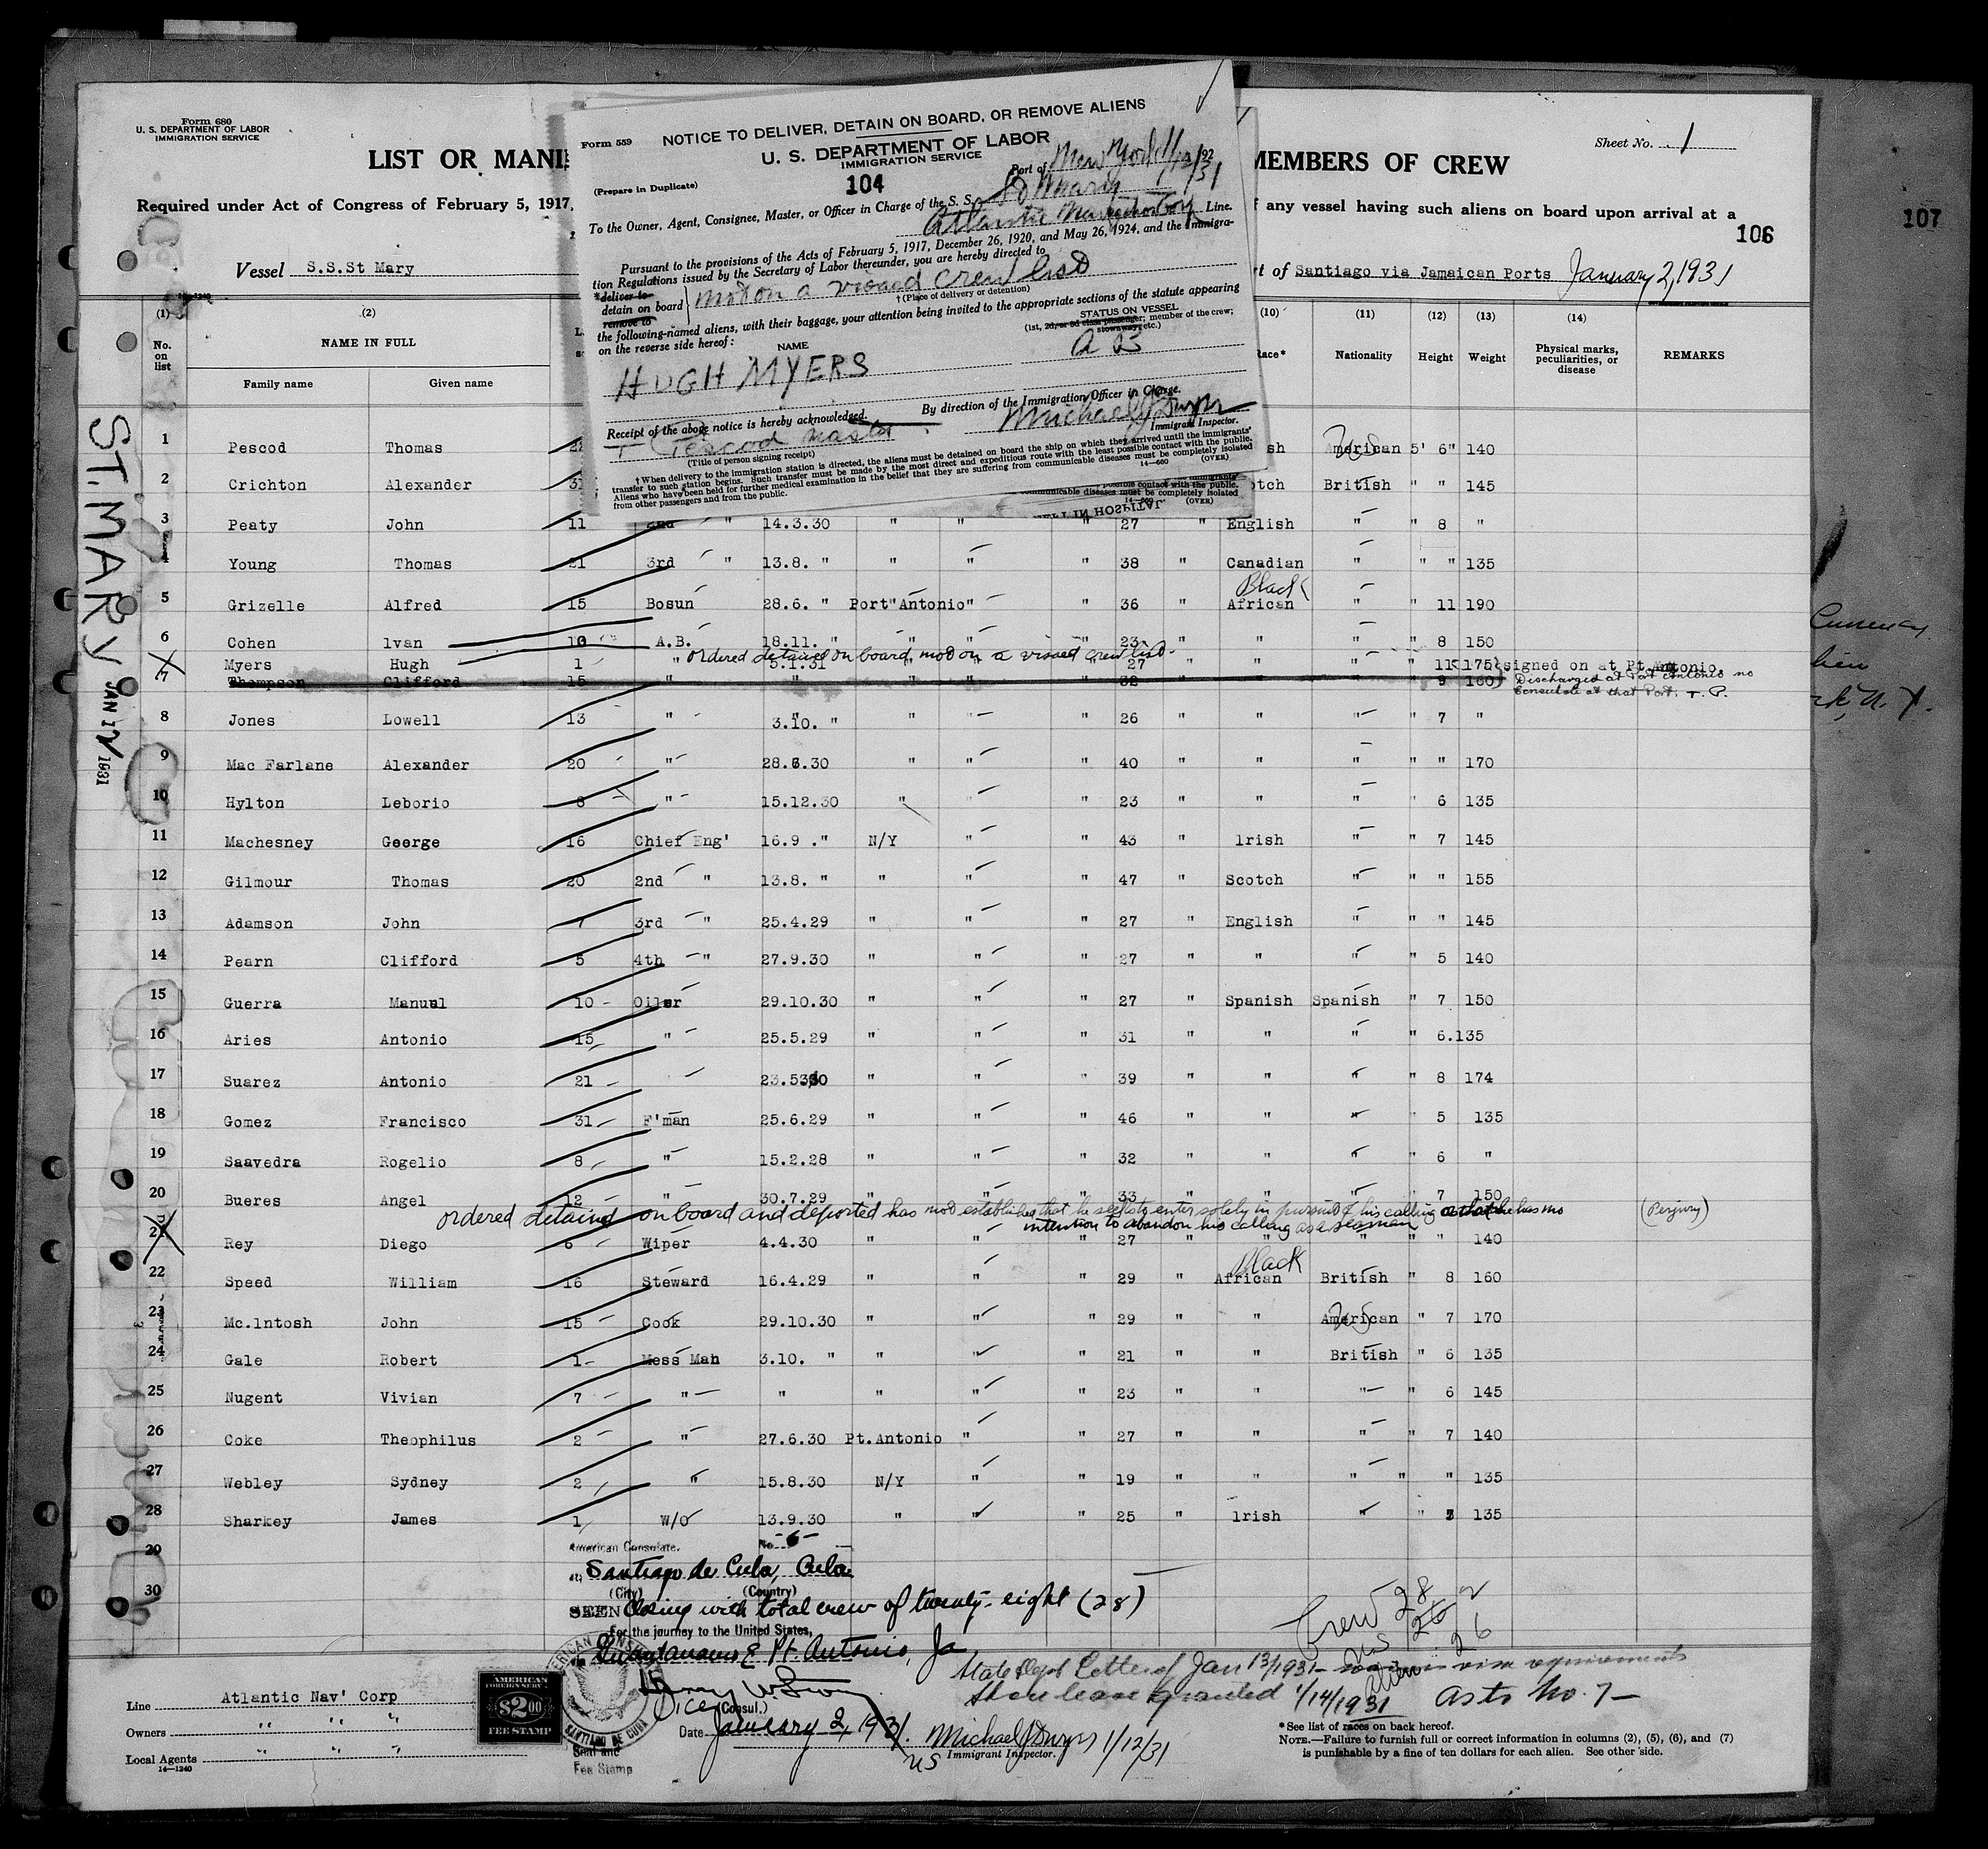 Form 680
U. S. DEPARTMENT OF LABOR
IMMIGRATION SERVICE
LIST OR MANI
MEMBERS OF CREW
Sheet No. 1
Required under Act of Congress of February 5, 1917,
any vessel having such aliens on board upon arrival at a
106
107
Vessel S.S.St Mary
rt of Santiago via Jamaican Ports January 2, 1931
Form 559
NOTICE TO DELIVER, DETAIN ON BOARD, OR REMOVE ALIENS
U. S. DEPARTMENT OF LABOR
IMMIGRATION SERVICE
(Prepare in Duplicate)
104
Port of New York 1/12/31
To the Owner, Agent, Consignee, Master, or Officer in Charge of the S. S.
Atlantic Line.
Pursuant to the provisions of the Acts of February 5, 1917, December 26, 1920, and May 26, 1924, and the Immigra-
tion Regulations issued by the Secretary of Labor thereunder, you are hereby directed to
*deliver to
detain on board
remove to
not on a visaed crew list
†(Place of delivery or detention)
the following-named aliens, with their baggage, your attention being invited to the appropriate sections of the statute appearing
on the reverse side hereof:
NAME
STATUS ON VESSEL
(1st, 2d, or 3d class passenger; member of the crew;
stowaway, etc.)
HUGH MYERS
A B
By direction of the Immigration Officer in Charge.
Receipt of the above notice is hereby acknowledged.
Michael J Dwyer
Immigrant Inspector.
T Pescod Master
(Title of person signing receipt)
†When delivery to the immigration station is directed, the aliens must be detained on board the ship on which they arrived until the immigrants'
transfer to such station begins. Such transfer must be made by the most direct and expeditious route with the least possible contact with the public.
Aliens who have been held for further medical examination in the belief that they are suffering from communicable diseases must be completely isolated
from other passengers and from the public.
14—660 (OVER)
possible contact with the public.
communicable diseases must be completely isolated
(OVER)
IN HOSPITAL
(1) (2) (10) (11) (12) (13) (14)
No. on list
NAME IN FULL
Family name Given name
Race* Nationality Height Weight Physical marks, peculiarities, or disease REMARKS
ST. MARY JAN 12 1931
1 Pescod Thomas 22 sh American US 5' 6" 140
2 Crichton Alexander 31 otch British " " 145
3 Peaty John 11 2nd " 14.3.30 " " " 27 " English " " 8 "
4 Young Thomas 21 3rd " 13.8. " " " " 38 " Canadian " " " 135
5 Grizelle Alfred 15 Bosun 28.6. " Port"Antonio" " 36 " Black African " " 11 190
6 Cohen lvan 10 A.B. 18.11. " " " " 23 " " " " 8 150
ordered detained on board, not on a visaed crew list.
Myers Hugh 1 " 5.1.31 " " " 27 " " " " 11 175 signed on at Pt.Antonio.
7 Thompson Clifford 15 " " " 32 9 160 Discharged at Port Antonio no
Consulate at that Port. T. P.
8 Jones Lowell 13 " 3.10. " " " " 26 " " " " 7 "
9 Mac Farlane Alexander 20 " 28.6.30 " " " 40 " " " " " 170
10 Hylton Leborio 8 " 15.12.30 " " " 23 " " " " 6 135
11 Machesney George 16 Chief Eng' 16.9 ." N/Y " " 43 " lrish " " 7 145
12 Gilmour Thomas 20 2nd " 13.8. " " " " 47 " Scotch " " " 155
13 Adamson John 7 3rd " 25.4.29 " " " 27 " English " " " 145
14 Pearn Clifford 5 4th " 27.9.30 " " " 27 " " " " 5 140
15 Guerra Manuel 10 Oiler 29.10.30 " " " 27 " Spanish Spanish " 7 150
16 Aries Antonio 15 " 25.5.29 " " " 31 " " " " 6.135
17 Suarez Antonio 21 " " " 39 " " " " 8 174
18 Gomez Francisco 31 F'man 25.6.29 " " " 46 " " " " 5 135
19 Saavedra Rogelio 8 " 15.2.28 " " " 32 " " " " 6 "
20 Bueres Angel 12 " 30.7.29 " " " 33 " " " " 7 150
ordered detained on board and deported has not established that he seeks to enter solely in pursuit of his calling or that he has no (Perjury)
intention to abandon his calling as a seaman
21 Rey Diego 6 Wiper 4.4.30 " " " 27 " " " " " 140
22 Speed William 16 Steward 16.4.29 " " " 29 " Black African British " 8 160
23 Mc.lntosh John 15 Cook 29.10.30 " " " 29 " " American US " 7 170
24 Gale Robert 1 Mess Man 3.10. " " " " 21 " " British " 6 135
25 Nugent Vivian 7 " " " " " 23 " " " " 6 145
26 Coke Theophilus 2 " 27.6.30 Pt.Antonio " " 27 " " " " 7 140
27 Webley Sydney 2 " 15.8.30 N/Y " " 19 " " " " " 135
28 Sharkey James 1 W/O 13.9.30 " " " 25 " lrish " " 135
29
30
American Consulate. No. 6
at Santiago de Cuba, Cuba
(City) (Country)
SEEN Closing with total crew of twenty-eight (28)
For the journey to the United States,
via Guantanamo & Pt. Antonio, Ja
Vice (Consul.)
Date January 2, 1931.
AMERICAN
FOREIGN SERVICE
$2.00
FEE STAMP
AMERICAN CONSULATE
SANTIAGO DE CUBA
Seal and
Fee Stamp
Crew 28
US 2
Alien 26
State Dept Letter of Jan 13/1931 visa requirements
Shore leave granted 1/14/1931 as to No. 7—
Michael J Dwyer 1/12/31
US Immigrant Inspector.
Line Atlantic Nav' Corp
Owners " " "
Local Agents " " "
14—1240
*See list of races on back hereof.
NOTE.—Failure to furnish full or correct information in columns (2), (5), (6), and (7)
is punishable by a fine of ten dollars for each alien. See other side.